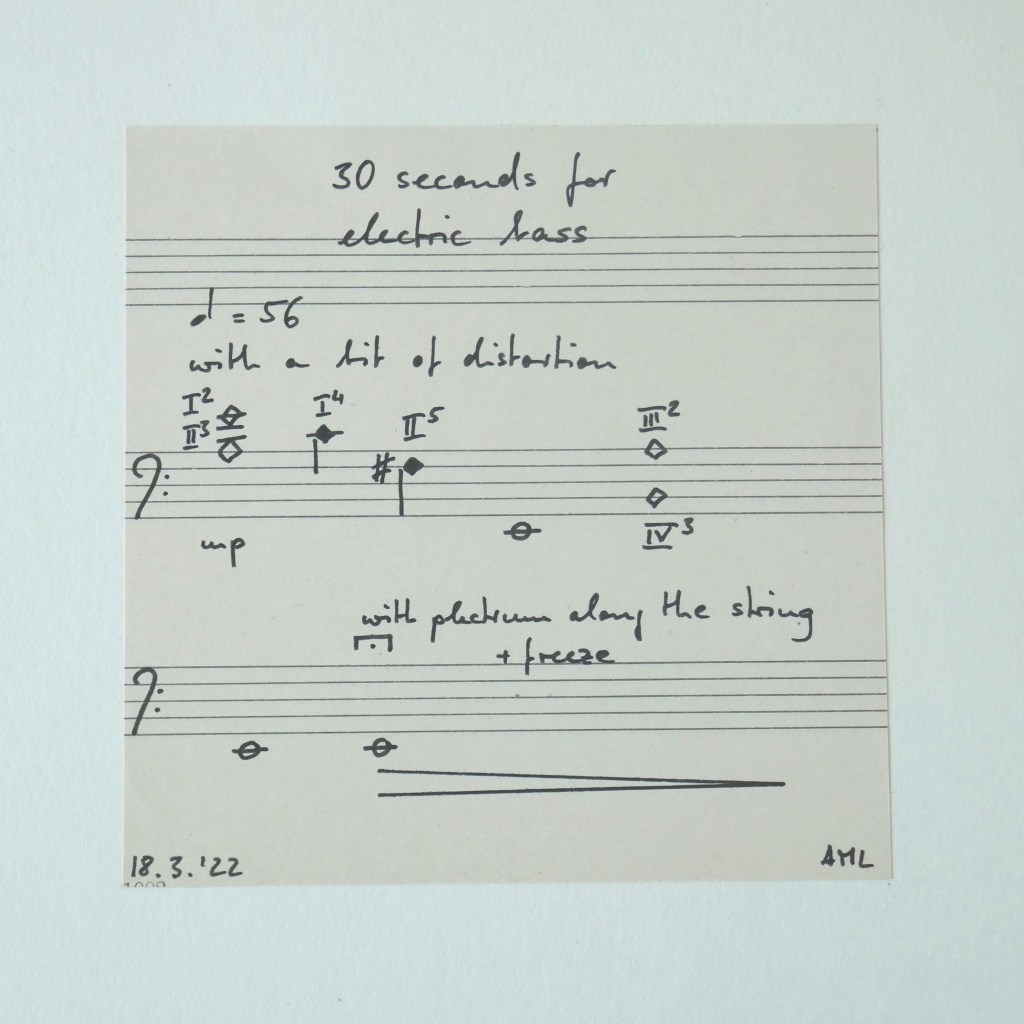 30 seconds for
electric bass
𝅗𝅥 = 56
with a bit of distortion
I² I⁴ II⁵ III²
II³
mp IV³
with plectrum along the string
+ freeze
18.3.'22 AML